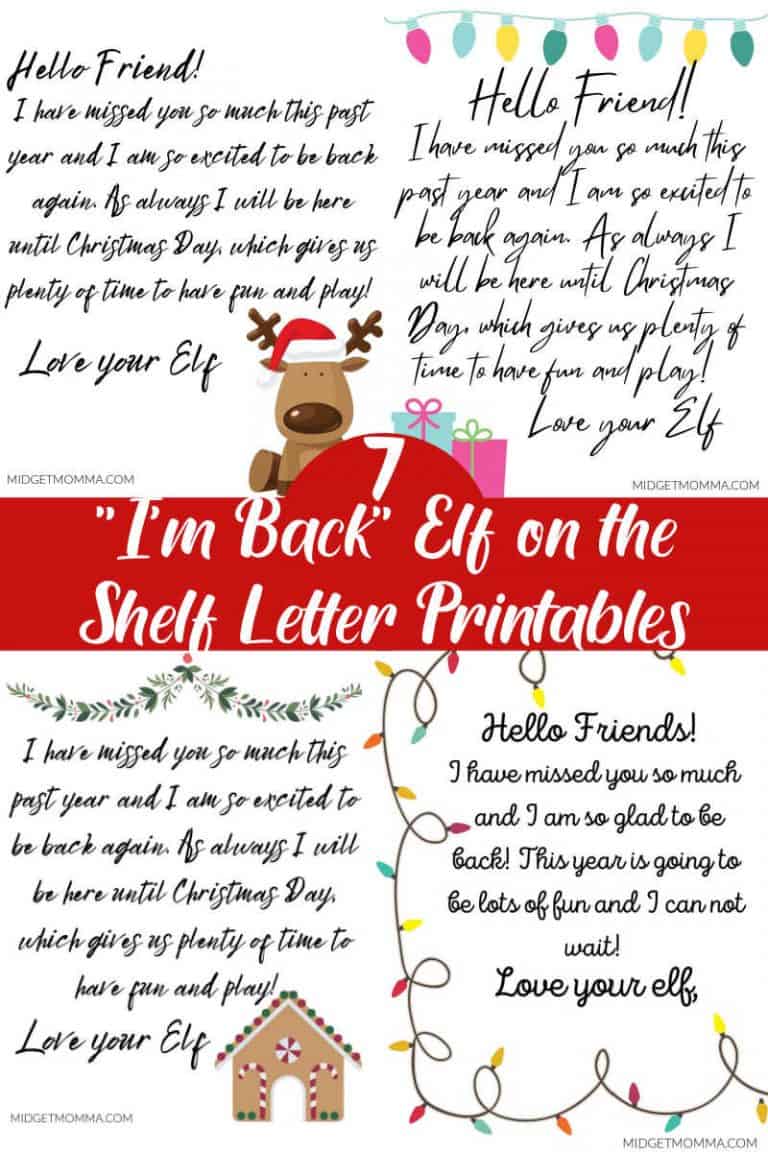 Hello Friend!
I have missed you so much this past
year and I am so excited to be back
again. As always I will be here
until Christmas Day, which gives us
plenty of time to have fun and play!
Love your Elf
MIDGETMOMMA.COM
Hello Friend!
I have missed you so much this
past year and I am so excited to
be back again. As always I
will be here until Christmas
Day, which gives us plenty of
time to have fun and play!
Love your Elf
MIDGETMOMMA.COM
7
"I'm Back" Elf on the
Shelf Letter Printables
I have missed you so much this
past year and I am so excited to
be back again. As always I will
be here until Christmas Day,
which gives us plenty of time to
have fun and play!
Love your Elf
MIDGETMOMMA.COM
Hello Friends!
I have missed you so much
and I am so glad to be
back! This year is going to
be lots of fun and I can not
wait!
Love your elf,
MIDGETMOMMA.COM